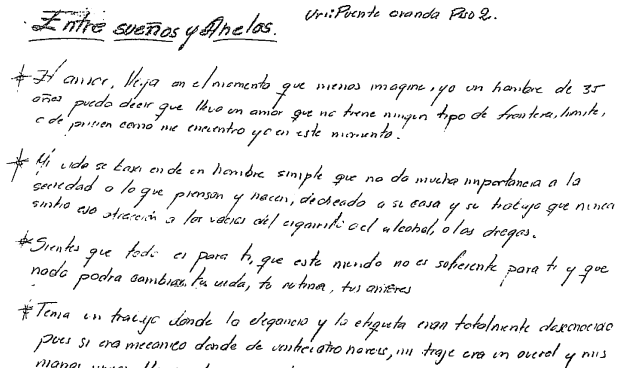 Entre sueños y Anelos.
Uri: Puente aranda Piso 2.
* El amor, llega en el momento que menos imagine, yo un hombre de 35
años puedo decir que llevo un amor que no tiene ningun tipo de frontera, limite,
o de prision como me encuentro yo en este momento.
* Mi vida se basa en de un hombre simple que no da mucha importancia a la
sociedad o lo que piensan y hacen, dedicado a su casa y su trabajo que nunca
sintio esa atracción a los vicios del cigarrillo del alcohol, o las drogas.
* Sientes que todo es para ti, que este mundo no es suficiente para ti y que
nada podra cambiar tu vida, tu rutina, tus
* Tenia un trabajo donde la elegancia y la etiqueta eran totalmente
pues si era mecanico donde de mi traje era un overol y mis
manos